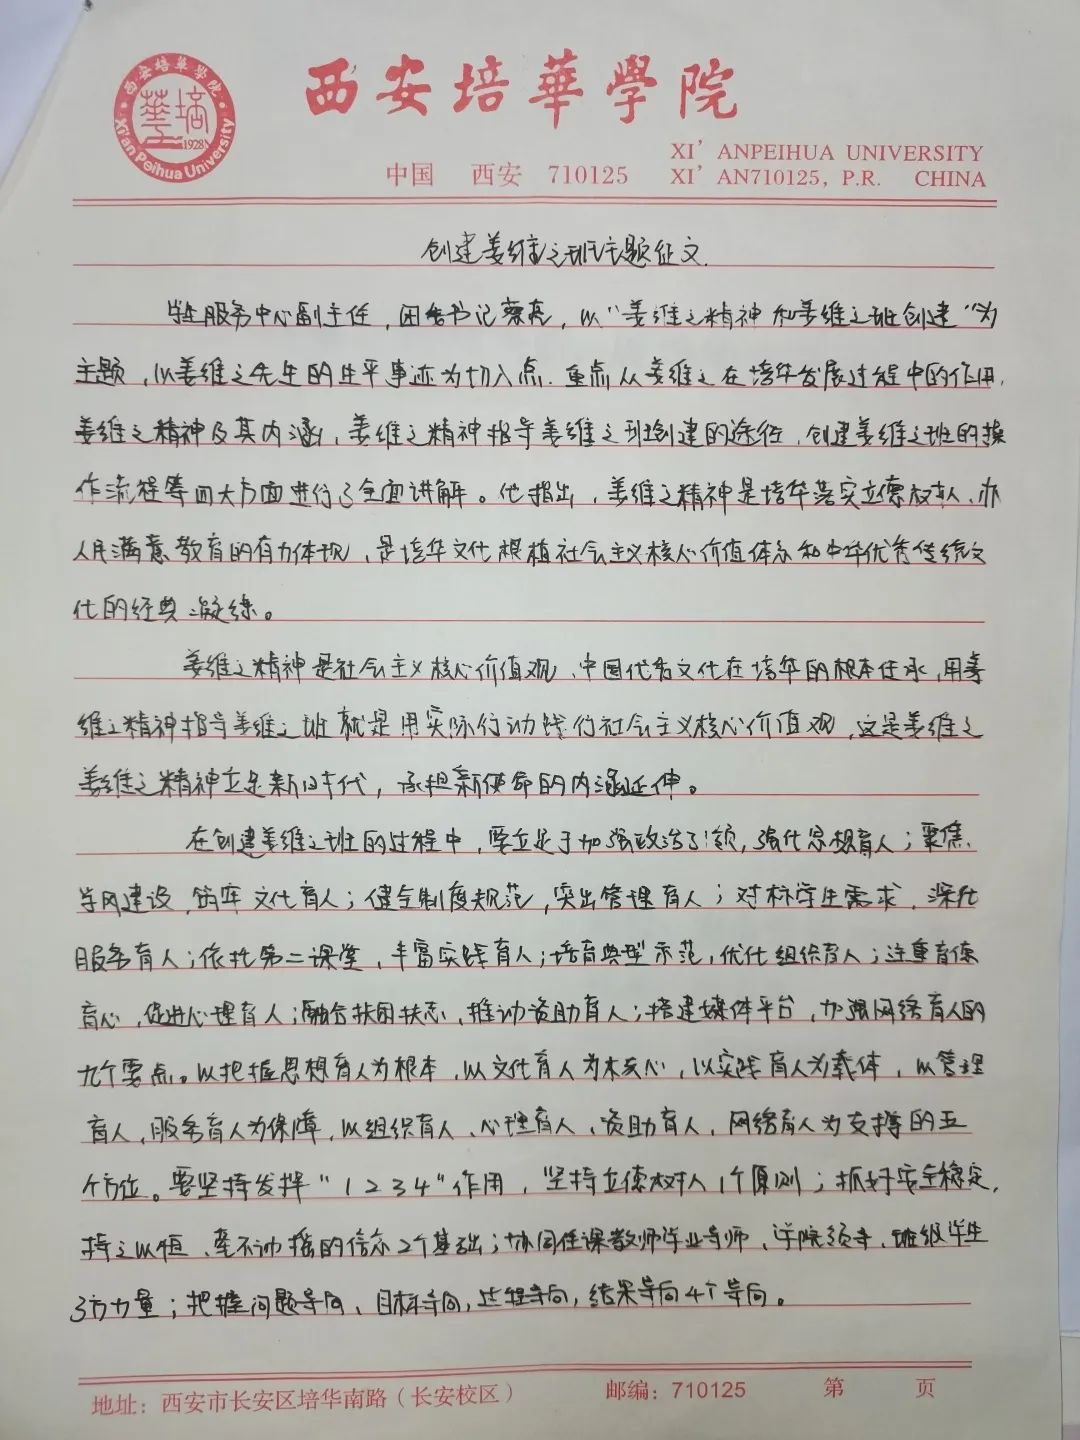 西安培華學院
西安培華學院
華培
1928
Xi'an Peihua University
中国 西安 710125
XI' ANPEIHUA UNIVERSITY
XI' AN710125, P.R. CHINA
创建姜维之班主题征文.
学生服务中心副主任，团委书记蔡亮，以“姜维之精神和姜维之班创建”为
主题，以姜维之先生的生平事迹为切入点.重点从姜维之在培华发展过程中的作用,
姜维之精神及其内涵，姜维之精神指导姜维之班创建的途径，创建姜维之班的操
作流程等四大方面进行了全面讲解。他指出，姜维之精神是培华落实立德树人、办
人民满意教育的有力体现，是培华文化根植社会主义核心价值体系和中华优秀传统文
化的经典凝练。
姜维之精神是社会主义核心价值观、中国优秀文化在培华的根本传承，用姜
维之精神指导姜维之班就是用实际行动践行社会主义核心价值观，这是姜维之
姜维之精神立足新时代，承担新使命的内涵延伸。
在创建姜维之班的过程中，要立足于加强政治引领，强化思想育人；聚焦
学风建设，筑牢文化育人；健全制度规范，突出管理育人；对标学生需求，深化
服务育人；依托第二课堂，丰富实践育人；培育典型示范，优化组织育人；注重育德
育心，促进心理育人；融合扶困扶志，推动资助育人；搭建媒体平台，加强网络育人的
九个要点。以把握思想育人为根本，以文化育人为核心，以实践育人为载体，以管理
育人，服务育人为保障，以组织育人、心理育人、资助育人，网络育人为支撑的五
个方位。要坚持发挥“1234”作用，坚持立德树人1个原则；抓好安全稳定，
持之以恒、毫不动摇的信念2个基础；协同任课教师学业导师、学院领导、班级学生
3方力量；把握问题导向、目标导向，过程导向，结果导向4个导向。
地址：西安市长安区培华南路（长安校区） 邮编：710125 第 页